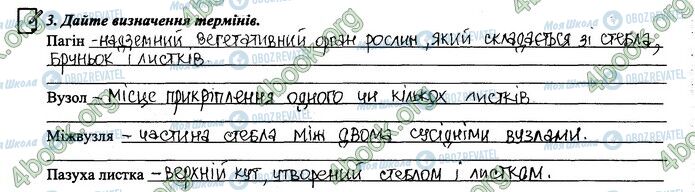 3. Дайте визначення термінів.
Пагін - надземний вегетативний орган рослин, який складається зі стебла,
бруньок і листків.
Вузол - місце прикріплення одного чи кількох листків.
Міжвузля - частина стебла між двома сусідніми вузлами.
Пазуха листка - верхній кут, утворений стеблом і листком.